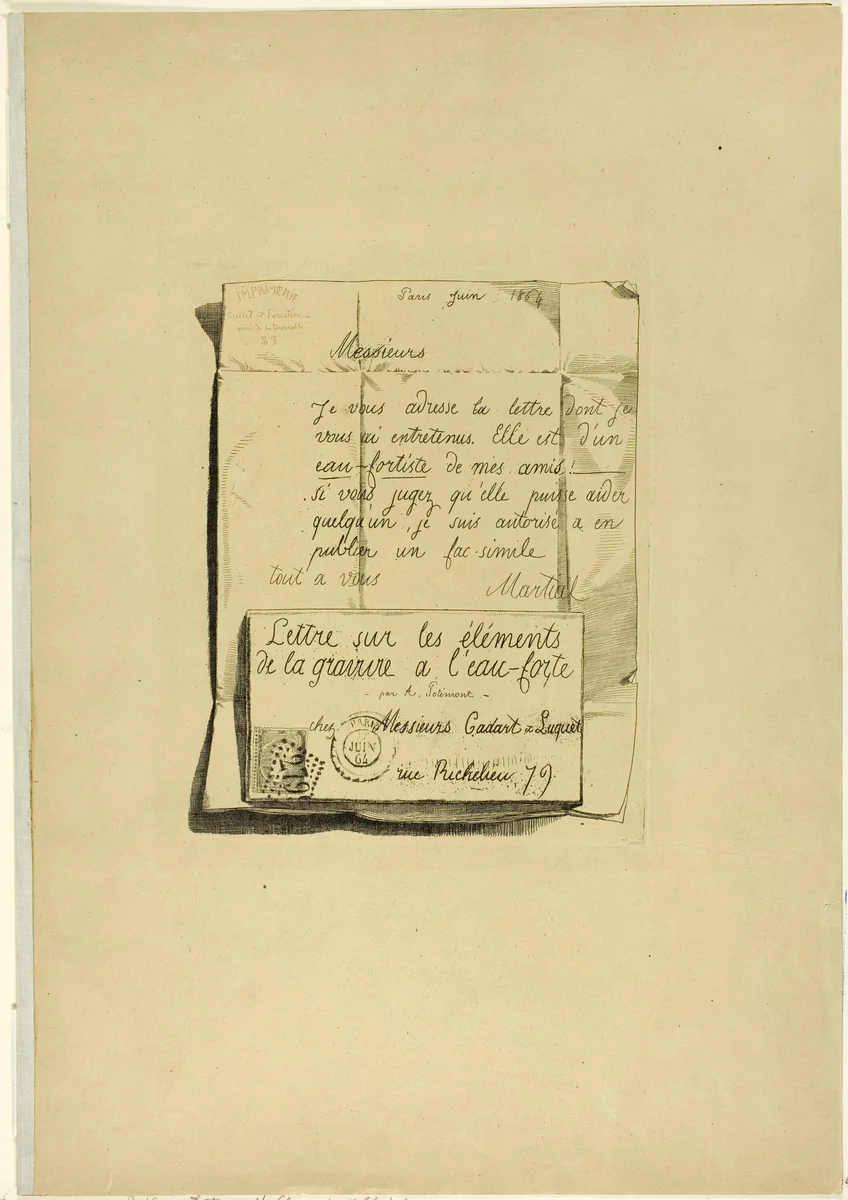 IMPRIMERIE
33
Paris Juin 1864
Messieurs
Je vous adresse la lettre dont je
vous ai entretenus. Elle est d'un
eau-fortiste de mes amis!
si vous jugez qu'elle puisse aider
quelqu'un, je suis autorisé a en
publier un fac-simile
tout a vous
Martial
Lettre sur les éléments
de la gravure a l'eau-forte
- par A. Potémont -
chez Messieurs Cadart & Luquet
PARIS
JUIN
64
rue Richelieu 79